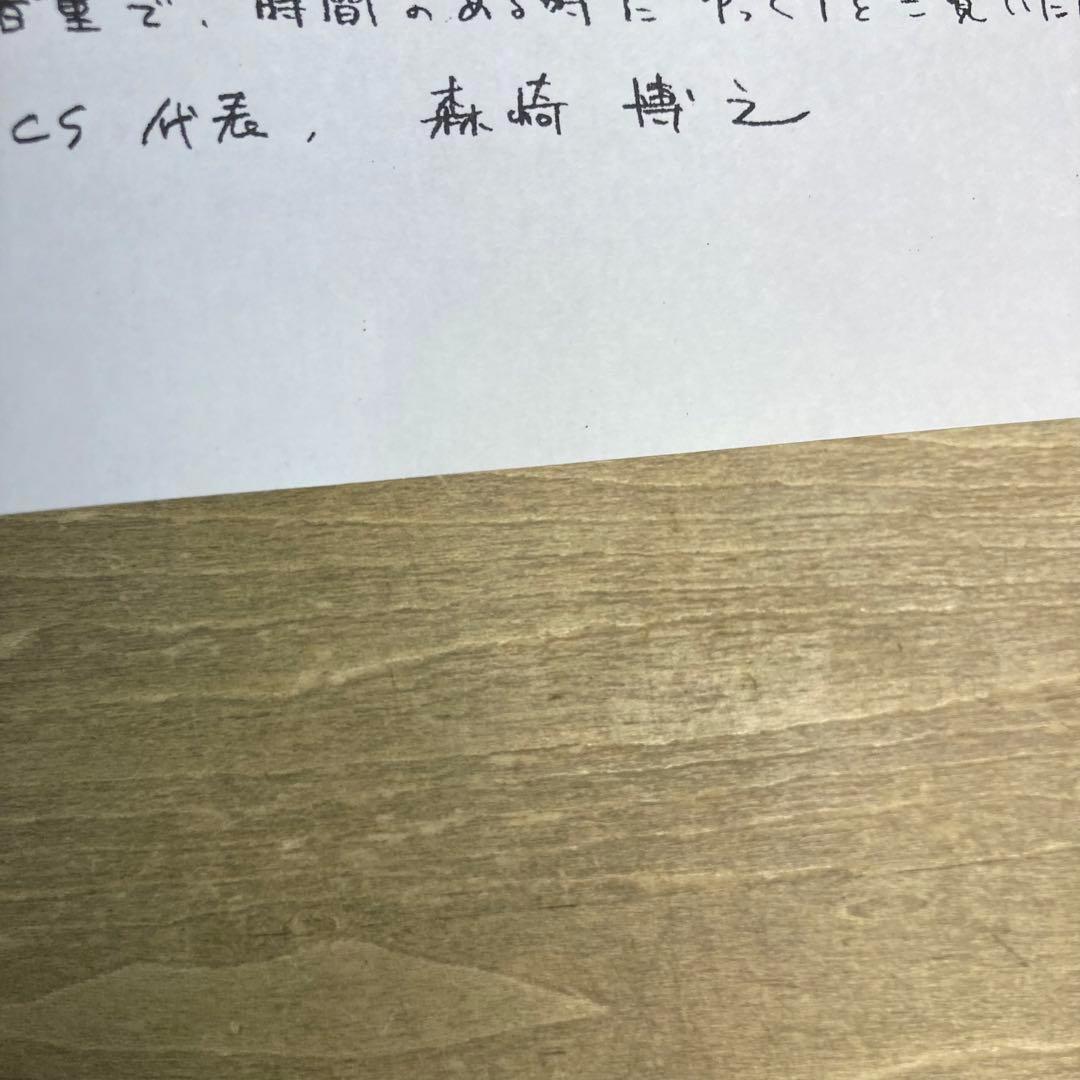 容量で、時間のある時に ゆっくりとご覧いただ
CS 代表, 森崎 博之